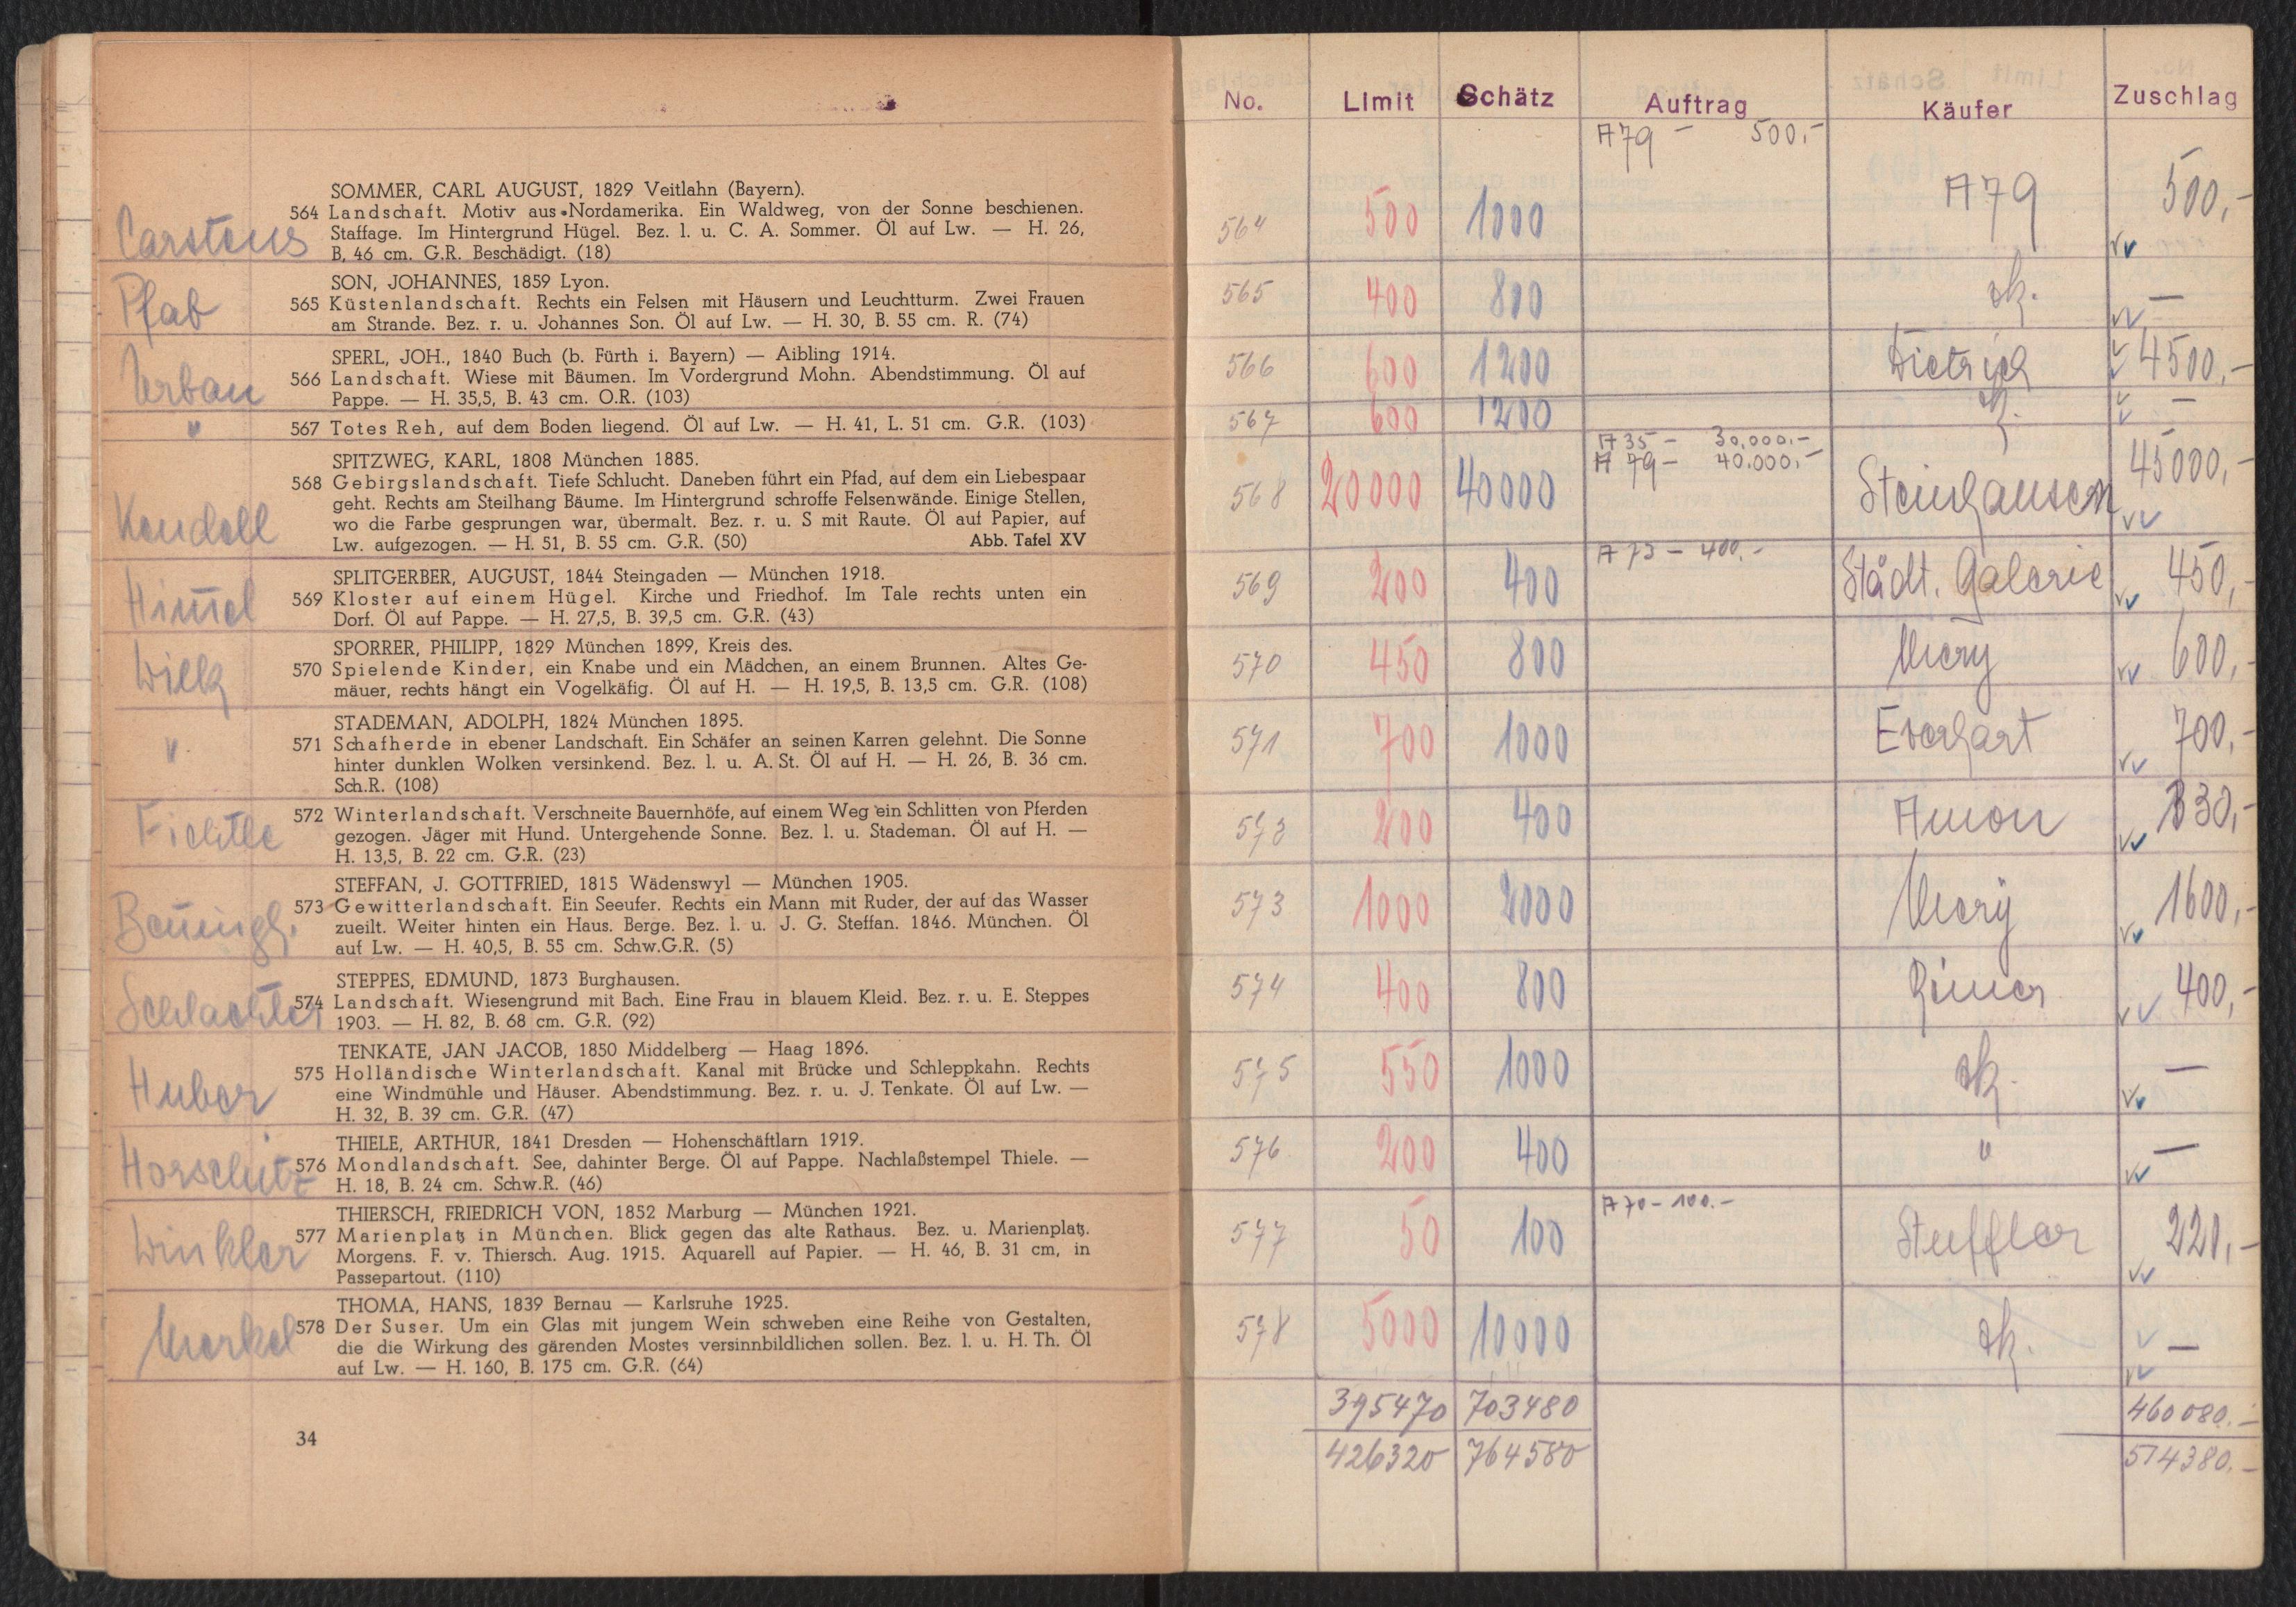 SOMMER, CARL AUGUST, 1829 Veitlahn (Bayern).
564 Landschaft. Motiv aus Nordamerika. Ein Waldweg, von der Sonne beschienen.
Staffage. Im Hintergrund Hügel. Bez. l. u. C. A. Sommer. Öl auf Lw. — H. 26,
B. 46 cm. G.R. Beschädigt. (18)
Carstens
SON, JOHANNES, 1859 Lyon.
565 Küstenlandschaft. Rechts ein Felsen mit Häusern und Leuchtturm. Zwei Frauen
am Strande. Bez. r. u. Johannes Son. Öl auf Lw. — H. 30, B. 55 cm. R. (74)
Pfab
SPERL, JOH., 1840 Buch (b. Fürth i. Bayern) — Aibling 1914.
566 Landschaft. Wiese mit Bäumen. Im Vordergrund Mohn. Abendstimmung. Öl auf
Pappe. — H. 35,5, B. 43 cm. O.R. (103)
Urban
567 Totes Reh, auf dem Boden liegend. Öl auf Lw. — H. 41, L. 51 cm. G.R. (103)
"
SPITZWEG, KARL, 1808 München 1885.
568 Gebirgslandschaft. Tiefe Schlucht. Daneben führt ein Pfad, auf dem ein Liebespaar
geht. Rechts am Steilhang Bäume. Im Hintergrund schroffe Felsenwände. Einige Stellen,
wo die Farbe gesprungen war, übermalt. Bez. r. u. S mit Raute. Öl auf Papier, auf
Lw. aufgezogen. — H. 51, B. 55 cm. G.R. (50) Abb. Tafel XV
SPLITGERBER, AUGUST, 1844 Steingaden — München 1918.
569 Kloster auf einem Hügel. Kirche und Friedhof. Im Tale rechts unten ein
Dorf. Öl auf Pappe. — H. 27,5, B. 39,5 cm. G.R. (43)
SPORRER, PHILIPP, 1829 München 1899, Kreis des.
570 Spielende Kinder, ein Knabe und ein Mädchen, an einem Brunnen. Altes Ge-
mäuer, rechts hängt ein Vogelkäfig. Öl auf H. — H. 19,5, B. 13,5 cm. G.R. (108)
STADEMAN, ADOLPH, 1824 München 1895.
571 Schafherde in ebener Landschaft. Ein Schäfer an seinen Karren gelehnt. Die Sonne
hinter dunklen Wolken versinkend. Bez. l. u. A. St. Öl auf H. — H. 26, B. 36 cm.
Sch.R. (108)
572 Winterlandschaft. Verschneite Bauernhöfe, auf einem Weg ein Schlitten von Pferden
gezogen. Jäger mit Hund. Untergehende Sonne. Bez. l. u. Stademan. Öl auf H. —
H. 13,5, B. 22 cm. G.R. (23)
STEFFAN, J. GOTTFRIED, 1815 Wädenswyl — München 1905.
573 Gewitterlandschaft. Ein Seeufer. Rechts ein Mann mit Ruder, der auf das Wasser
zueilt. Weiter hinten ein Haus. Berge. Bez. l. u. J. G. Steffan. 1846. München. Öl
auf Lw. — H. 40,5, B. 55 cm. Schw.G.R. (5)
STEPPES, EDMUND, 1873 Burghausen.
574 Landschaft. Wiesengrund mit Bach. Eine Frau in blauem Kleid. Bez. r. u. E. Steppes
1903. — H. 82, B. 68 cm. G.R. (92)
Schlachter
TENKATE, JAN JACOB, 1850 Middelberg — Haag 1896.
575 Holländische Winterlandschaft. Kanal mit Brücke und Schleppkahn. Rechts
eine Windmühle und Häuser. Abendstimmung. Bez. r. u. J. Tenkate. Öl auf Lw. —
H. 32, B. 39 cm. G.R. (47)
Huber
THIELE, ARTHUR, 1841 Dresden — Hohenschäftlarn 1919.
576 Mondlandschaft. See, dahinter Berge. Öl auf Pappe. Nachlaßstempel Thiele. —
H. 18, B. 24 cm. Schw.R. (46)
Horschitz
THIERSCH, FRIEDRICH VON, 1852 Marburg — München 1921.
577 Marienplatz in München. Blick gegen das alte Rathaus. Bez. u. Marienplatz.
Morgens. F. v. Thiersch. Aug. 1915. Aquarell auf Papier. — H. 46, B. 31 cm, in
Passepartout. (110)
Winkler
THOMA, HANS, 1839 Bernau — Karlsruhe 1925.
578 Der Suser. Um ein Glas mit jungem Wein schweben eine Reihe von Gestalten,
die die Wirkung des gärenden Mostes versinnbildlichen sollen. Bez. l. u. H. Th. Öl
auf Lw. — H. 160, B. 175 cm. G.R. (64)
Merkel
34
No. Limit Schätz Auftrag Käufer Zuschlag
A79 — 500,-
564 500 1000 A79 500,-
565 400 800 —
566 600 1200 Dietrich 4500,-
567 600 1200 —
A 35 — 30.000.-
A 79 — 40.000.-
568 20000 40000 Steinhausen 45000,-
A 73 — 400.-
569 200 400 Städt. Galerie 450,-
570 450 800 600,-
571 700 1000 Everhart 700,-
200 400 Amon 330,-
573 1000 2000 1600,-
574 400 800 400,-
575 550 1000 —
576 200 400 " —
A 70 - 100.-
577 50 100 Stuffler 220,-
578 5000 10000 —
395470 703480 460080.-
426320 764580 514380.-